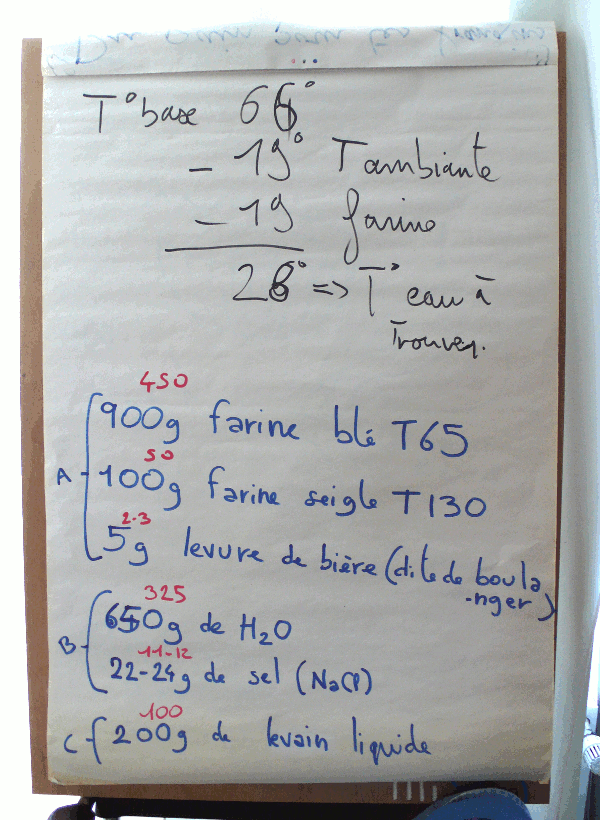 T° base 66°
- 19° T ambiante
- 19 farine
28° => T° eau à
Trouver.
450
900g farine blé T65
50
A 100g farine seigle T130
2-3
5g levure de bière (dite de boula
-nger)
325
650g de H2O
11-12
B 22-24g de sel (NaCl)
100
C 200g de levain liquide